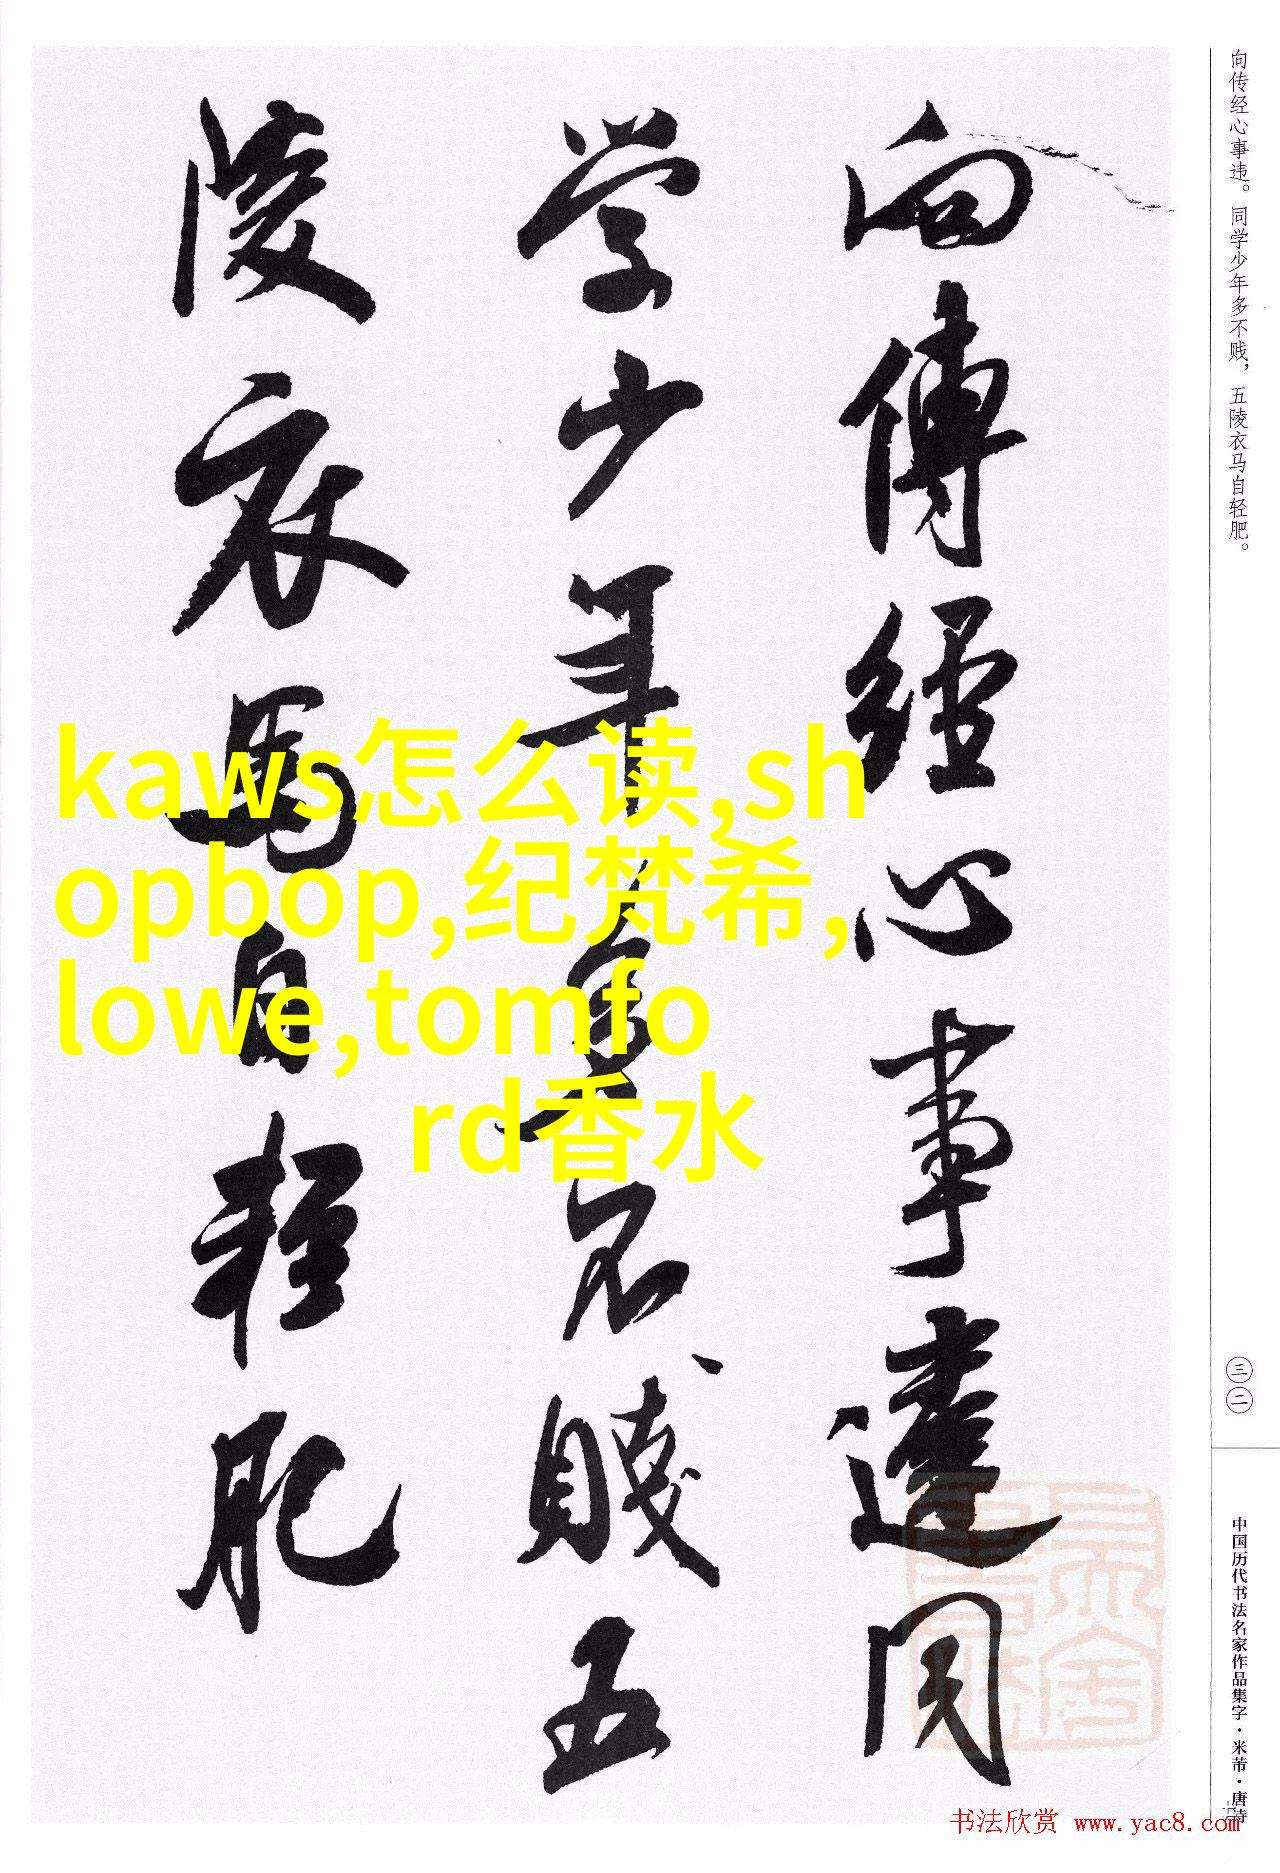 向传经心事违。同学少年多不贱，五陵衣马自轻肥。
三二
中国历代书法名家作品集字·米芾·唐诗
向傳經心事違同
学少年多不賤五
陵衣馬自輕肥
kaws怎么读,sh
opbop,纪梵希,
lowe,tomfo
rd香水
书法欣赏 www.yac8.com